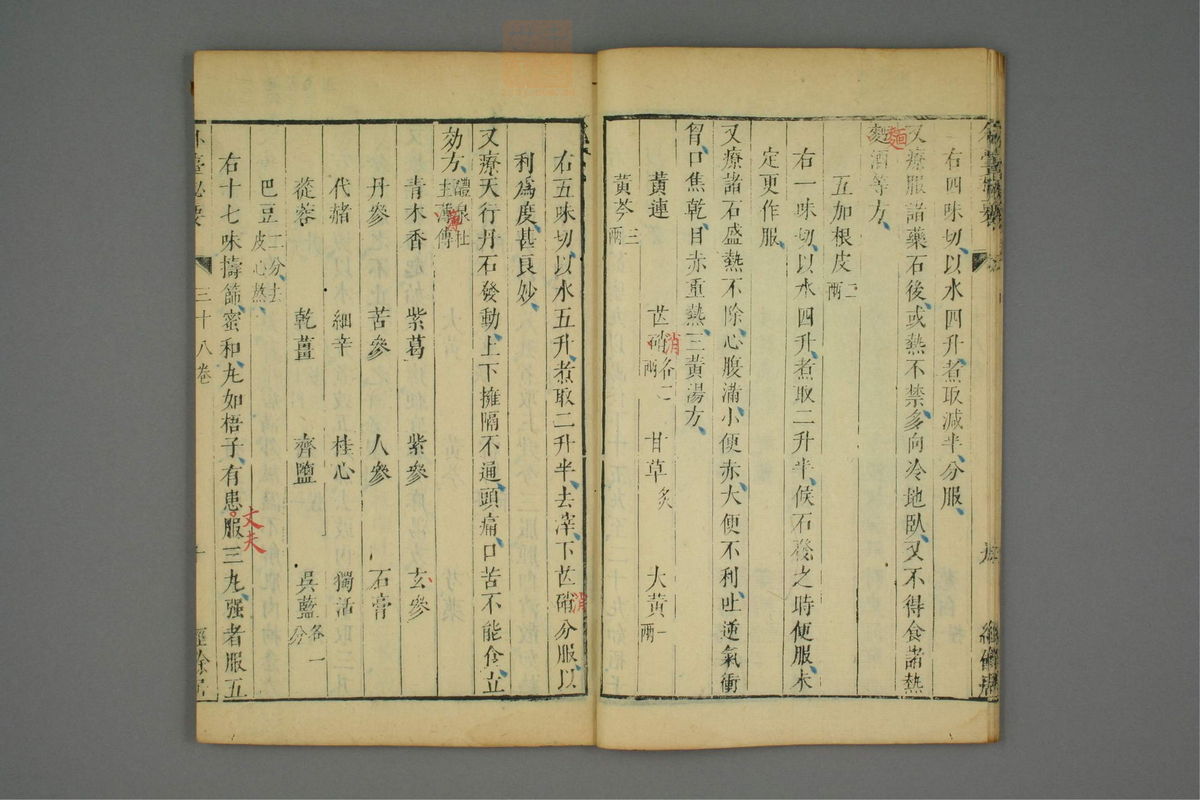 右四味切以水四升煮取減半分服
又療服諸藥石後或熱不禁多向冷地臥又不得食諸熱
麵
麪酒等方
五加根皮二兩
右一味切以水四升煮取二升半候石發之時便服未
定更作服
又療諸石盛熱不除心腹滿小便赤大便不利吐逆氣衝
胷口焦乾目赤重熱三黃湯方
黃連 芒硝各二兩 甘草炙 大黃一兩
消
黃芩三兩
右五味切以水五升煮取二升半去滓下芒硝分服以
消
利為度甚良妙
又療天行丹石發動上下擁隔不通頭痛口苦不能食立
効方醴泉杜主薄傳
簿
青木香 紫葛 紫參 玄參
丹參 苦參 人參 石膏
代赭 細辛 桂心 獨活
蓯蓉 乾薑 齊鹽 吳藍各一分
巴豆二分去皮心熬
右十七味擣篩蜜和丸如梧子有患服三丸强者服五
丈夫
外臺祕要 三十八卷 十 經餘居